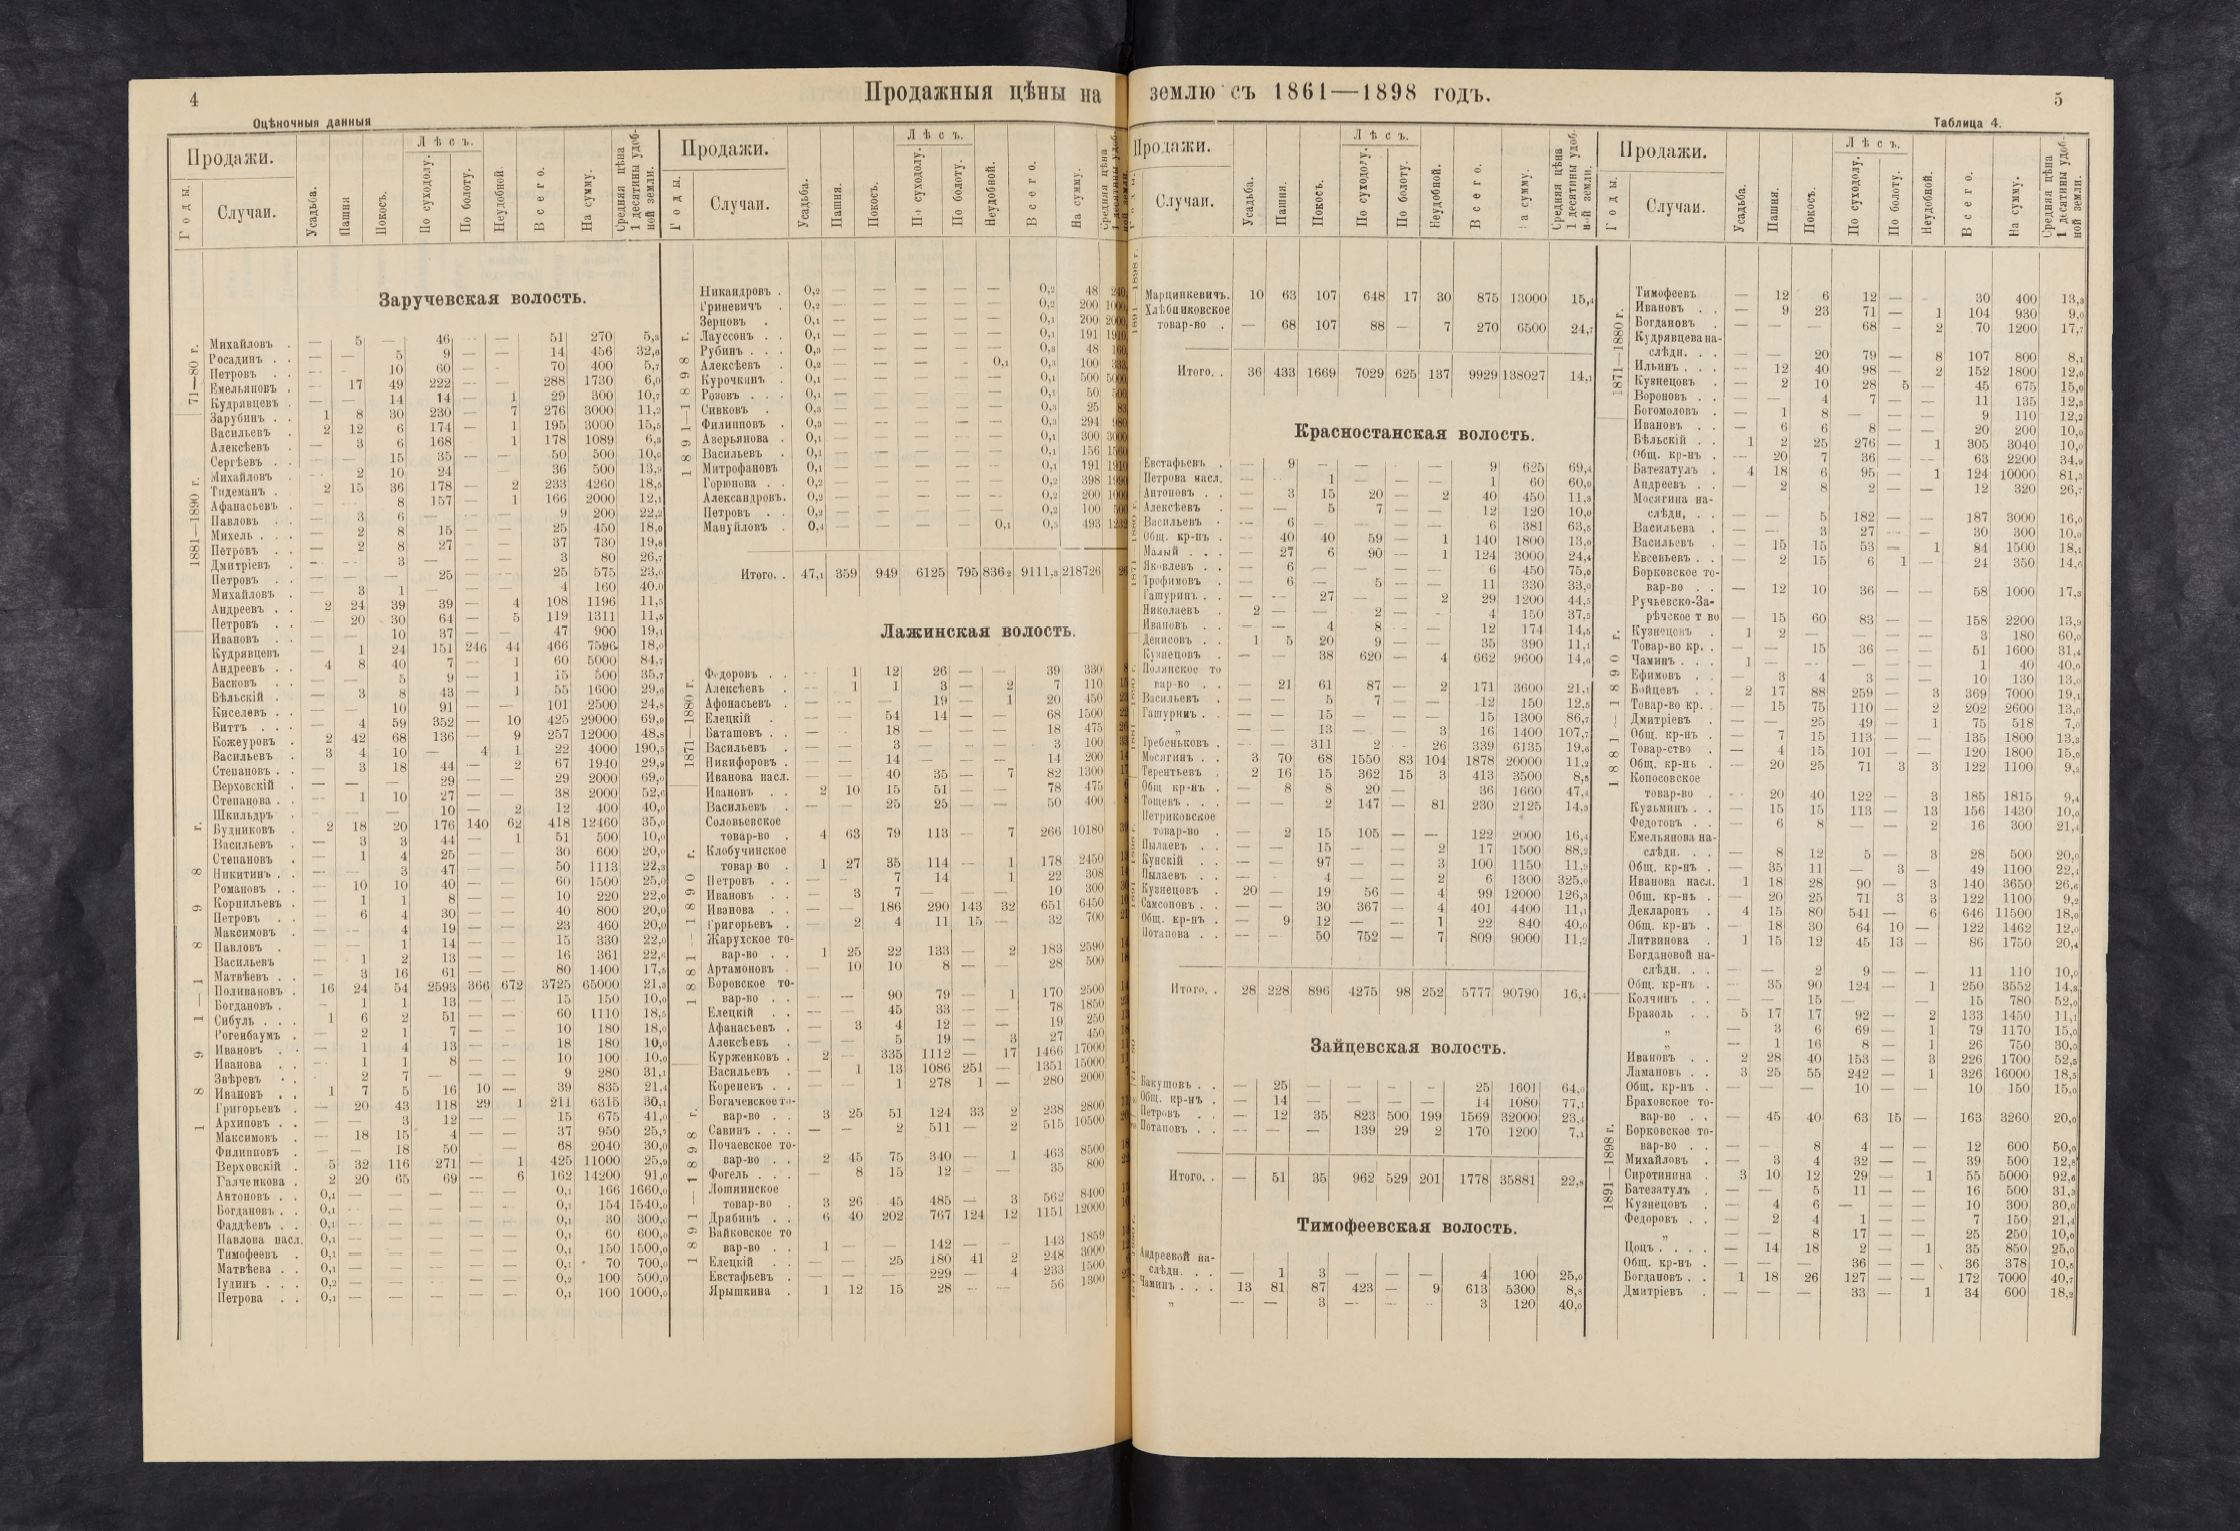 4
Продажныя цѣны на
Оцѣночныя данныя
Продажи.
Годы.
Случаи.
Усадьба.
Пашня
Покосъ.
Лѣсъ.
По суходолу.
По болоту.
Неудобной.
Всего.
На сумму.
Средняя цѣна 1 десятины удобной земли.
Заручевская волость.
71—80 г.
Михайловъ . — 5 — 46 — — 51 270 5,3
Росадинъ . . — — 5 9 — — 14 456 32,6
Петровъ . . 10 60 — - 70 400 5,7
Емельяновъ . — 17 49 222 — — 288 1730 6,0
Кудрявцевъ . 14 14 — 1 29 300 10,7
1881—1890 г.
Зарубинъ . . 1 8 30 230 — 7 276 3000 11,2
Васильевъ . 2 12 6 174 — 1 195 3000 15,5
Алексѣевъ . — 3 6 168 1 178 1089 6,3
Сергѣевъ . . 15 35 — 50 500 10,0
Михайловъ . — 2 10 24 — 36 500 13,9
Тидеманъ . 2 15 36 178 — 2 233 4260 18,5
Афанасьевъ . 8 157 — 1 166 2000 12,1
Павловъ . . — 3 6 — — 9 200 22,2
Михель . . . — 2 8 15 — — 25 450 18,0
Петровъ . . — 2 8 27 — — 37 730 19,8
Дмитріевъ . 3 — — — 3 80 26,7
Петровъ . . — — — 25 — — 25 575 23,0
Михайловъ . 3 1 — — — 4 160 40,0
Андреевъ . . 2 24 39 39 — 4 108 1196 11,5
Петровъ . . 20 30 64 — 5 119 1311 11,5
1891—1898 г.
Ивановъ . . — — 10 37 — — 47 900 19,1
Кудрявцевъ — 1 24 151 246 44 466 7596 18,0
Андреевъ . . 4 8 40 7 — 1 60 5000 84,7
Васковъ . . — — 5 9 — 1 15 500 35,7
Бѣльскій . . — 3 8 43 — 1 55 1600 29,6
Киселевъ . . 10 91 — — 101 2500 24,8
Виттъ . . . — 4 59 352 — 10 425 29000 69,9
Кожеуровъ . 2 42 68 136 — 9 257 12000 48,8
Васильевъ . 3 4 10 — 4 1 22 4000 190,5
Степановъ . . — 3 18 44 — 2 67 1940 29,9
Верховскій . — — — 29 — — 29 2000 69,0
Степанова . . 1 10 27 — — 38 2000 52,6
Шкильдръ . — 10 — 2 12 400 40,0
Будниковъ . 2 18 20 176 140 62 418 12460 35,0
Васильевъ . — 3 3 44 — 1 51 500 10,0
Степановъ . — 1 4 25 — — 30 600 20,0
Никитинъ . . — 3 47 — — 50 1113 22,3
Романовъ . . — 10 10 40 — — 60 1500 25,0
Корнильевъ . — 1 1 8 — — 10 220 22,0
Петровъ . . — 6 4 30 — — 40 800 20,0
Максимовъ . — — 4 19 — — 23 460 20,0
Павловъ . — — 1 14 — — 15 330 22,0
Васильевъ — 1 2 13 — — 16 361 22,6
Матвѣевъ . . — 3 16 61 — — 80 1400 17,5
Поливановъ . 16 24 54 2593 366 672 3725 65000 21,3
Богдановъ . — 1 1 13 — — 15 150 10,0
Сибуль . . . 1 6 2 51 — — 60 1110 18,5
Рогенбаумъ . — 2 1 7 — — 10 180 18,0
Ивановъ . . — 1 4 13 — — 18 180 10,0
Иванова . . — 1 1 8 — — 10 100 10,0
Звѣревъ . . 2 7 — — — 9 280 31,1
Ивановъ . . 1 7 5 16 10 — 39 835 21,4
Григорьевъ . — 20 43 118 29 1 211 6315 30,1
Архиповъ . . — — 3 12 — — 15 675 41,0
Максимовъ . — 18 15 4 — — 37 950 25,7
Филипповъ . — — 18 50 — — 68 2040 30,0
Верховскій . 5 32 116 271 — 1 425 11000 25,9
Галченкова . 2 20 65 69 — 6 162 14200 91,0
Антоновъ . . 0,1 — — — — — 0,1 166 1660,0
Богдановъ . . 0,1 — — — — — 0,1 154 1540,0
Фаддѣевъ . . 0,1 — — — — — 0,1 30 300,0
Павлова насл. 0,1 — — — — — 0,1 60 600,0
Тимофеевъ . 0,1 — — — — — 0,1 150 1500,0
Матвѣева . . 0,1 — — — — — 0,1 70 700,0
Іудинъ . . . 0,2 — — — — — 0,2 100 500,0
Петрова . . 0,1 — — — — — 0,1 100 1000,0
Продажи.
Годы.
Случаи.
Усадьба.
Пашня.
Покосъ.
Лѣсъ.
По суходолу.
По болоту.
Неудобной.
Всего.
На сумму.
Средняя цѣна
1891—1898 г.
Никандровъ . 0,2 — — — — — 0,2 48
Гриневичъ . 0,2 — — — — — 0,2 200
Зерновъ . 0,1 — — — — — 0,1 200
Лауссонъ . . 0,1 — — — — — 0,1 191
Рубинъ . . . 0,3 — — — — — 0,3 48
Алексѣевъ . 0,2 — — — — 0,1 0,3 100
Курочкинъ . 0,1 — — — — — 0,1 500
Розовъ . . . 0,1 — — — — — 0,1 50
Сивковъ . 0,3 — — — — — 0,3 25
Филипповъ . 0,3 — — — — — 0,3 294
Аверьянова . 0,1 — — — — — 0,1 300
Васильевъ . 0,1 — — — — — 0,1 156
Митрофановъ 0,1 — — — — — 0,1 191
Горюнова . . 0,2 — — — — — 0,2 398
Александровъ. 0,2 — — — — — 0,2 200
Петровъ . . 0,2 — — — — — 0,2 100
Мануйловъ . 0,4 — — — — 0,1 0,5 493
Итого. . 47,1 359 949 6125 795 836,2 9111,3 218726
Лажинская волость.
1871—1880 г.
Федоровъ . . — 1 12 26 — — 39 330
Алексѣевъ — 1 1 3 — 2 7 110
Афонасьевъ . — — 19 — 1 20 450
Елецкій . — — 54 14 — — 68 1500
Баташовъ . . — — 18 — — — 18 475
Васильевъ . — — 3 — — — 3 100
Никифоровъ . — — 14 — — — 14 200
Иванова насл. — — 40 35 — 7 82 1300
1881—1890 г.
Ивановъ . . 2 10 15 51 — 78 475
Васильевъ . — — 25 25 — — 50 400
Соловьевское
товар-во . 4 63 79 113 — 7 266 10180
Клобучинское
товар во . 1 27 35 114 — 1 178 2450
Петровъ . . — — 7 14 1 22 308
Ивановъ . . 3 7 — — — 10 300
Иванова . . — 186 290 143 32 651 6450
Григорьевъ . — 2 4 11 15 — 32 700
Жарухское то-
вар-во . . 1 25 22 133 — 2 183 2590
Артамоновъ . — 10 10 8 — — 28 500
Боровское то-
вар-во . . — — 90 79 — 1 170 2500
Елецкій . . — — 45 33 — — 78 1850
Афанасьевъ . — 3 4 12 — — 19 250
Алексѣевъ . — — 5 19 — 3 27 450
1891—1898 г.
Курженковъ . 2 — 335 1112 — 17 1466 17000
Васильевъ . — 1 13 1086 251 — 1351 15000
Кореневъ . . — — 1 278 1 — 280 2000
Богачевское то-
вар-во . . 3 25 51 124 33 2 238 2800
Савинъ . . . — — 2 511 — 2 515 10500
Почаевское то-
вар-во . . 2 45 75 340 — 1 463 8500
Фогель . . . — 8 15 12 — — 35 800
Лошнинское
товар-во . 3 26 45 485 — 3 562 8400
Дрябинъ . . 6 40 202 767 124 12 1151 12000
Вайковское то
вар-во . . 1 — — 142 — — 143 1859
Елецкій . . — — 25 180 41 2 248 3000
Евстафьевъ . — — — 229 — 4 233 1500
Ярышкина . 1 12 15 28 — — 56 1300
землю съ 1861—1898 годъ.
5
Таблица 4.
Продажи.
Случаи.
Усадьба.
Пашня.
Покосъ.
Лѣсъ.
По суходолу.
По болоту.
Неудобной.
Всего.
на сумму.
Средняя цѣна 1 десятины удобной земли.
1891—1898 г.
Марцинкевичъ. 10 63 107 648 17 30 875 13000 15,4
Хлѣбниковское
товар-во . — 68 107 88 — 7 270 6500 24,7
Итого. . 36 433 1669 7029 625 137 9929 138027 14,1
Красностанская волость.
Евстафьевъ . — 9 — — — — 9 625 69,4
Петрова насл. 1 — — — 1 60 60,0
Антоновъ . . — 3 15 20 — 2 40 450 11,8
Алексѣевъ . — 5 7 — 12 120 10,0
Васильевъ . — 6 — — — — 6 381 63,5
Общ. кр-нъ . — 40 40 59 — 1 140 1800 13,0
Малый . . . — 27 6 90 — 1 124 3000 24,4
Яковлевъ . . — 6 — — — — 6 450 75,0
Трофимовъ . — 6 — 5 — — 11 330 33,0
Гашуринъ . . — — 27 — — 2 29 1200 44,5
Николаевъ . 2 — — 2 — — 4 150 37,5
Ивановъ . . — — 4 8 — — 12 174 14,5
Денисовъ . . 1 5 20 9 — — 35 390 11,1
Кузнецовъ . — — 38 620 — 4 662 9600 14,6
Полянское то
вар-во . . — 21 61 87 — 2 171 3600 21,1
Васильевъ . — — 5 7 — — 12 150 12,5
Гашуринъ . . — — 15 — — — 15 1300 86,7
„ — — 13 — — 3 16 1400 107,7
Гребеньковъ . — — 311 2 - 26 339 6135 19,6
Мосягинъ . . 3 70 68 1550 83 104 1878 20000 11,2
Терентьевъ . 2 16 15 362 15 3 413 3500 8,5
Общ кр-нъ . — 8 8 20 — 36 1660 47,4
Тощевъ . . . — — 2 147 — 81 230 2125 14,3
Петриковское
товар-во . — 2 15 105 — — 122 2000 16,4
Пылаевъ . . — — 15 — — 2 17 1500 88,2
Кунскій . . — — 97 — — 3 100 1150 11,9
Пылаевъ . . — — 4 — — 2 6 1300 325,0
Кузнецовъ . 20 — 19 56 — 4 99 12000 126,3
Самсоновъ . . — — 30 367 — 4 401 4400 11,1
Общ. кр-нъ . — 9 12 — — 1 22 840 40,0
Потапова . . — — 50 752 — 7 809 9000 11,2
Итого. . 28 228 896 4275 98 252 5777 90790 16,4
Зайцевская волость.
Бакушовъ . . — 25 — — — — 25 1601 64,0
Общ. кр-нъ . — 14 — — — — 14 1080 77,1
Петровъ . . — 12 35 823 500 199 1569 32000 23,4
Потаповъ . . — — — 139 29 2 170 1200 7,1
Итого. . — 51 35 962 529 201 1778 35881 22,8
Тимофеевская волость.
Андреевой на-
слѣдн. . . — 1 3 — — — 4 100 25,0
Чаминъ . . . 13 81 87 423 — 9 613 5300 8,8
„ — — 3 — — — 3 120 40,0
Продажи.
Годы.
Случаи.
Усадьба.
Пашня.
Покосъ.
Лѣсъ.
По суходолу.
По болоту.
Неудобной.
Всего.
На сумму.
Средняя цѣна 1 десятины удобной земли.
1871—1880 г.
Тимофеевъ — 12 6 12 — 30 400 13,3
Ивановъ . . — 9 23 71 — 1 104 930 9,0
Богдановъ . 68 — 2 70 1200 17,7
Кудрявцева на-
слѣдн. . . — — 20 79 — 8 107 800 8,1
Ильинъ . . . — 12 40 98 — 2 152 1800 12,0
Кузнецовъ . — 2 10 28 5 — 45 675 15,0
Вороновъ . . — 4 7 — — 11 135 12,3
Богомоловъ . — 1 8 — — — 9 110 12,2
1881—1890 г.
Ивановъ . . — 6 6 8 — — 20 200 10,0
Бѣльскій . . 1 2 25 276 — 1 305 3040 10,0
Общ. кр-нъ . — 20 7 36 — — 63 2200 34,9
Батезатулъ . 4 18 6 95 — 1 124 10000 81,3
Андреевъ . . — 2 8 2 — — 12 320 26,7
Мосягина на-
слѣдн. . . — — 5 182 — — 187 3000 16,0
Васильева . — — 3 27 — — 30 300 10,0
Васильевъ . — 15 15 53 — 1 84 1500 18,1
Евсевьевъ . . — 2 15 6 1 — 24 350 14,6
Борковское то-
вар-во . . — 12 10 36 — — 58 1000 17,3
Ручьевско-За-
рѣчское т во — 15 60 83 — — 158 2200 13,9
Кузнецовъ . 1 2 — — — — 3 180 60,0
Товар-во кр. . — — 15 36 — — 51 1600 31,4
Чаминъ . . . 1 — — — — — 1 40 40,0
Ефимовъ . . — 3 4 3 — — 10 130 13,0
Войцевъ . . 2 17 88 259 — 3 369 7000 19,1
Товар-во кр. . — 15 75 110 — 2 202 2600 13,0
Дмитріевъ . — — 25 49 — 1 75 518 7,0
Общ. кр-нъ . — 7 15 113 — — 135 1800 13,3
Товар-ство . — 4 15 101 — — 120 1800 15,0
Общ. кр-нъ . — 20 25 71 3 3 122 1100 9,2
Копосовское
товар-во . — 20 40 122 — 3 185 1815 9,4
Кузьминъ . . — 15 15 113 — 13 156 1430 10,0
Федотовъ . . — 6 8 — — 2 16 300 21,4
Емельянова на-
слѣдн. . . — 8 12 5 — 3 28 500 20,0
Общ. кр-нъ . — 35 11 — 3 — 49 1100 22,4
Иванова насл. 1 18 28 90 — 3 140 3650 26,6
Общ. кр-нъ . — 20 25 71 3 3 122 1100 9,2
Декларонъ . 4 15 80 541 — 6 646 11500 18,0
Общ. кр-нъ . — 18 30 64 10 — 122 1462 12,0
Литвинова . 1 15 12 45 13 — 86 1750 20,4
Богдановой на-
слѣдн. . . — — 2 9 — — 11 110 10,0
Общ. кр-нъ . — 35 90 124 — 1 250 3552 14,3
1891—1898 г.
Колчинъ . . — — 15 — — — 15 780 52,0
Бразоль . . 5 17 17 92 — 2 133 1450 11,1
„ — 3 6 69 — 1 79 1170 15,0
„ — 1 16 8 — 1 26 750 30,0
Ивановъ . . 2 28 40 153 — 3 226 1700 52,5
Ламановъ . . 3 25 55 242 — 1 326 16000 18,5
Общ. кр-нъ . — — — 10 — — 10 150 15,0
Браховское то-
вар-во . . — 45 40 63 15 — 163 3260 20,0
Борковское то-
вар-во . . — — 8 4 — — 12 600 50,0
Михайловъ . — 3 4 32 — — 39 500 12,8
Сиротинина . 3 10 12 29 — 1 55 5000 92,6
Батезатулъ . — — 5 11 — — 16 500 31,3
Кузнецовъ . — 4 6 — — — 10 300 30,0
Федоровъ . . — 2 4 1 — — 7 150 21,4
„ — — 8 17 — — 25 250 10,0
Цоцъ . . . . — 14 18 2 — 1 35 850 25,0
Общ. кр-нъ . — — — 36 — — 36 378 10,5
Богдановъ . . 1 18 26 127 — — 172 7000 40,7
Дмитріевъ . — — — 33 — 1 34 600 18,2